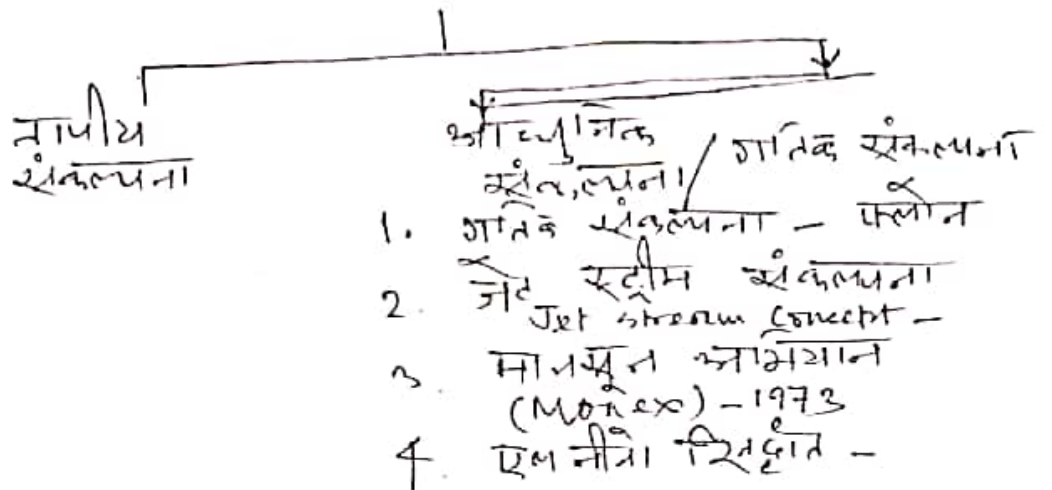 तापीय
संकल्पना
आधुनिक
संकल्पना
गतिक संकल्पना
1. गतिक संकल्पना - फ्लोन
2. जेट स्ट्रीम संकल्पना
Jet stream Concept -
3. मानसून अभियान
(Monex) - 1973
4. एल नीनो सिद्धांत -